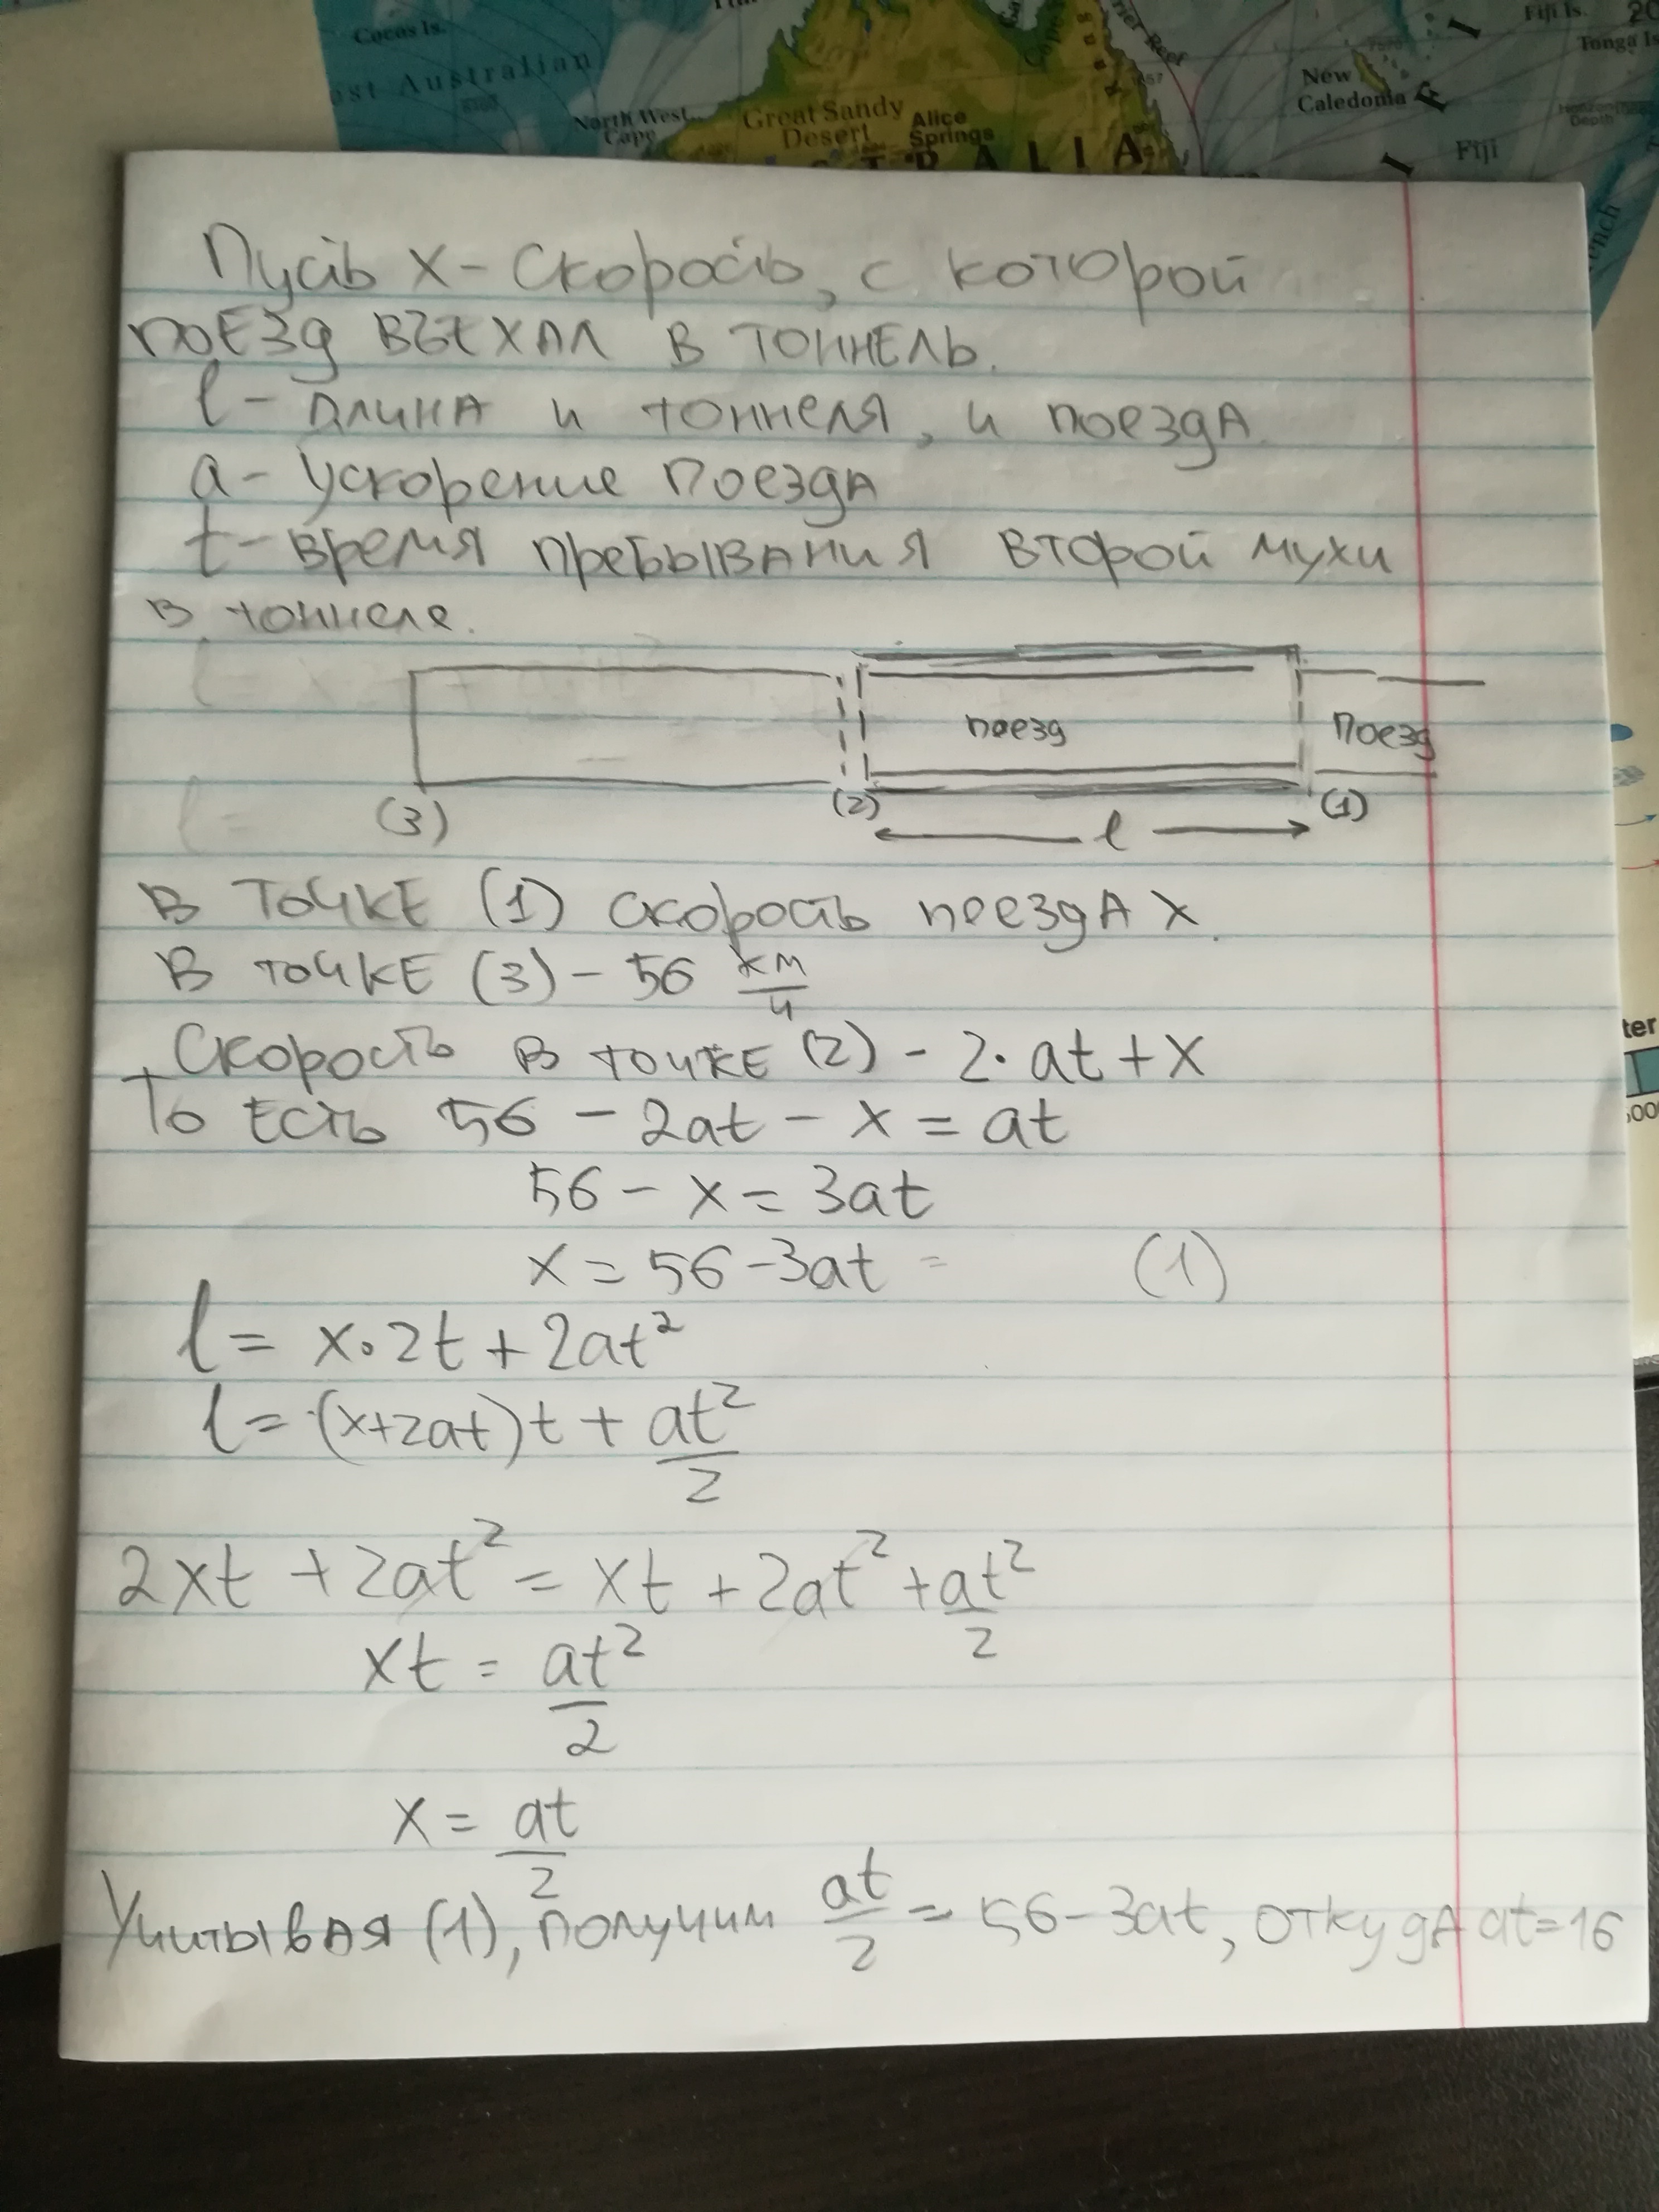 Cocos Is.
st Australian
North West
Cape
Great Sandy
Desert
Alice
Springs
RALIA
New
Caledonia
Fiji
Fiji Is.
Tonga Is
20
Пусть x - скорость, с которой
поезд въехал в тоннель.
l - длина и тоннеля, и поезда.
a - ускорение поезда
t - время пребывания второй мухи
в тоннеле.
поезд
Поезд
(3)
(2)
l
(1)
В точке (1) скорость поезда x.
В точке (3) - 56 км/ч
Скорость в точке (2) - 2·at+x
То есть 56 - 2at - x = at
56 - x = 3at
x = 56 - 3at = (1)
l = x·2t + 2at²
l = (x+2at)t + at²/2
2xt + 2at² = xt + 2at² + at²/2
xt = at²/2
x = at/2
Учитывая (1), получим at/2 = 56 - 3at, откуда at = 16